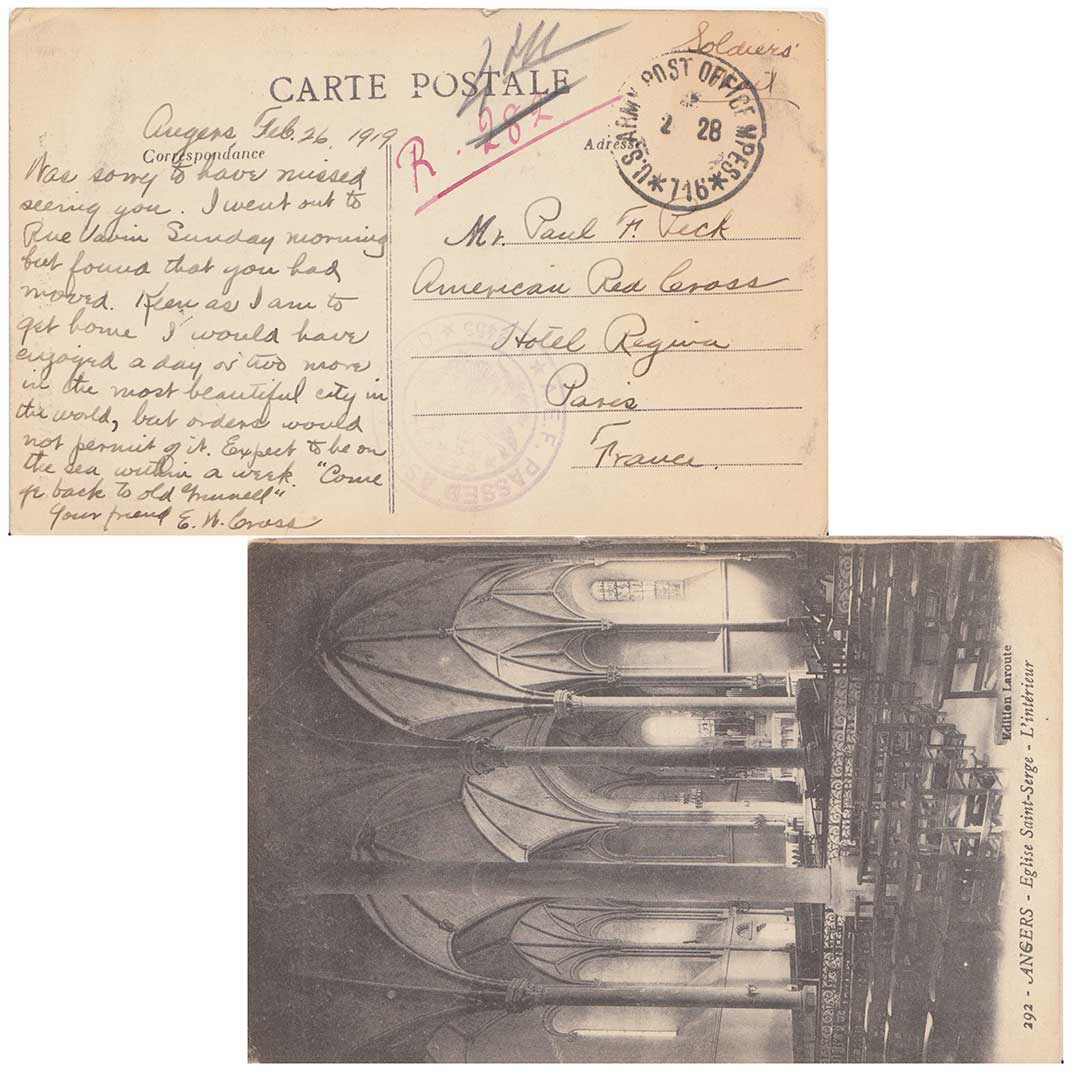 Soldiers'
Mail
CARTE POSTALE
R. 282
U.S. ARMY POST OFFICE M.P.E.S.
2 28
*716*
Angers Feb. 26, 1919
Correspondance
Adresse
Was sorry to have missed
seeing you. I went out to
Rue Vavin Sunday morning
but found that you had
moved. Keen as I am to
get home I would have
enjoyed a day or two more
in the most beautiful city in
the world, but orders would
not permit of it. Expect to be on
the sea within a week. "Come
ye back to old Grinnell"
Your friend E. W. Cross
Mr. Paul F. Peck
American Red Cross
Hotel Regina
Paris
France.
A.E.F. PASSED AS
Edition Laroute
292 - ANGERS - Eglise Saint-Serge - L'intérieur